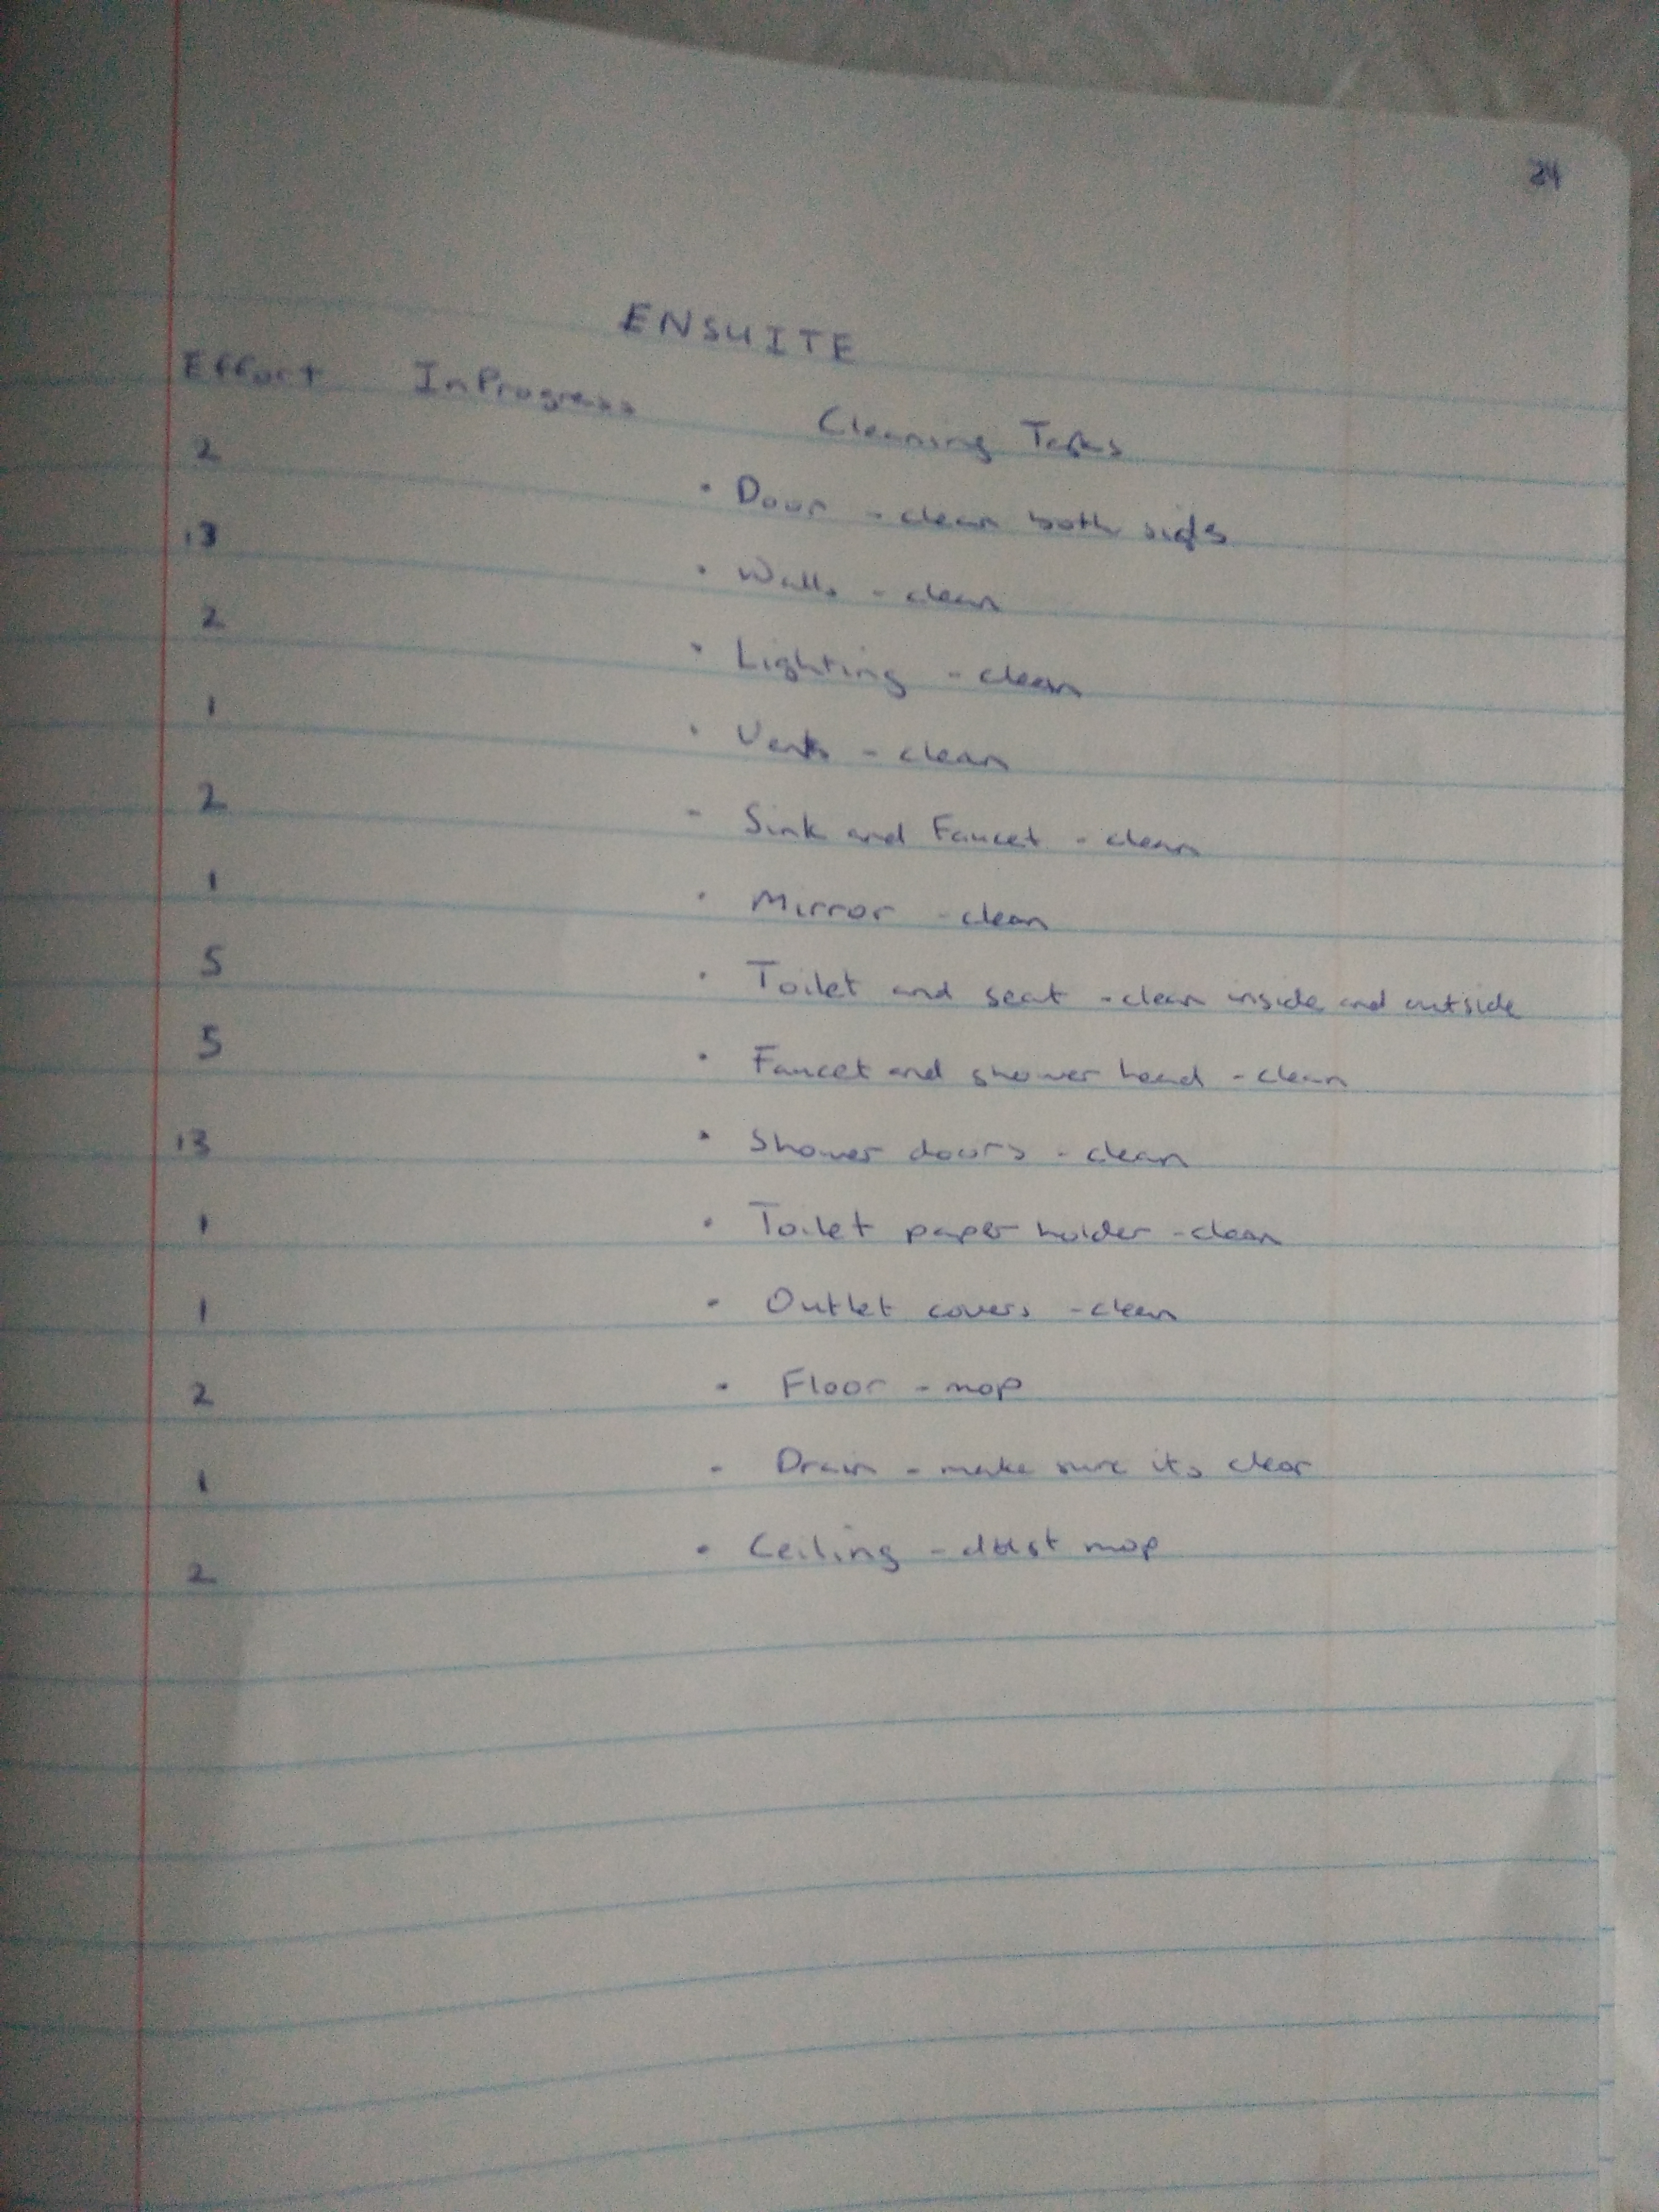 24
ENSUITE
Effort InProgress Cleaning Tasks
2 • Door - clean both sides
13 • Walls - clean
2 • Lighting - clean
1 • Vents - clean
2 - Sink and Faucet - clean
1 • Mirror - clean
5 • Toilet and seat - clean inside and outside
5 • Faucet and shower head - clean
13 • Shower doors - clean
1 • Toilet paper holder - clean
1 • Outlet covers - clean
2 • Floor - mop
1 - Drain - make sure its clear
2 • Ceiling - dust mop